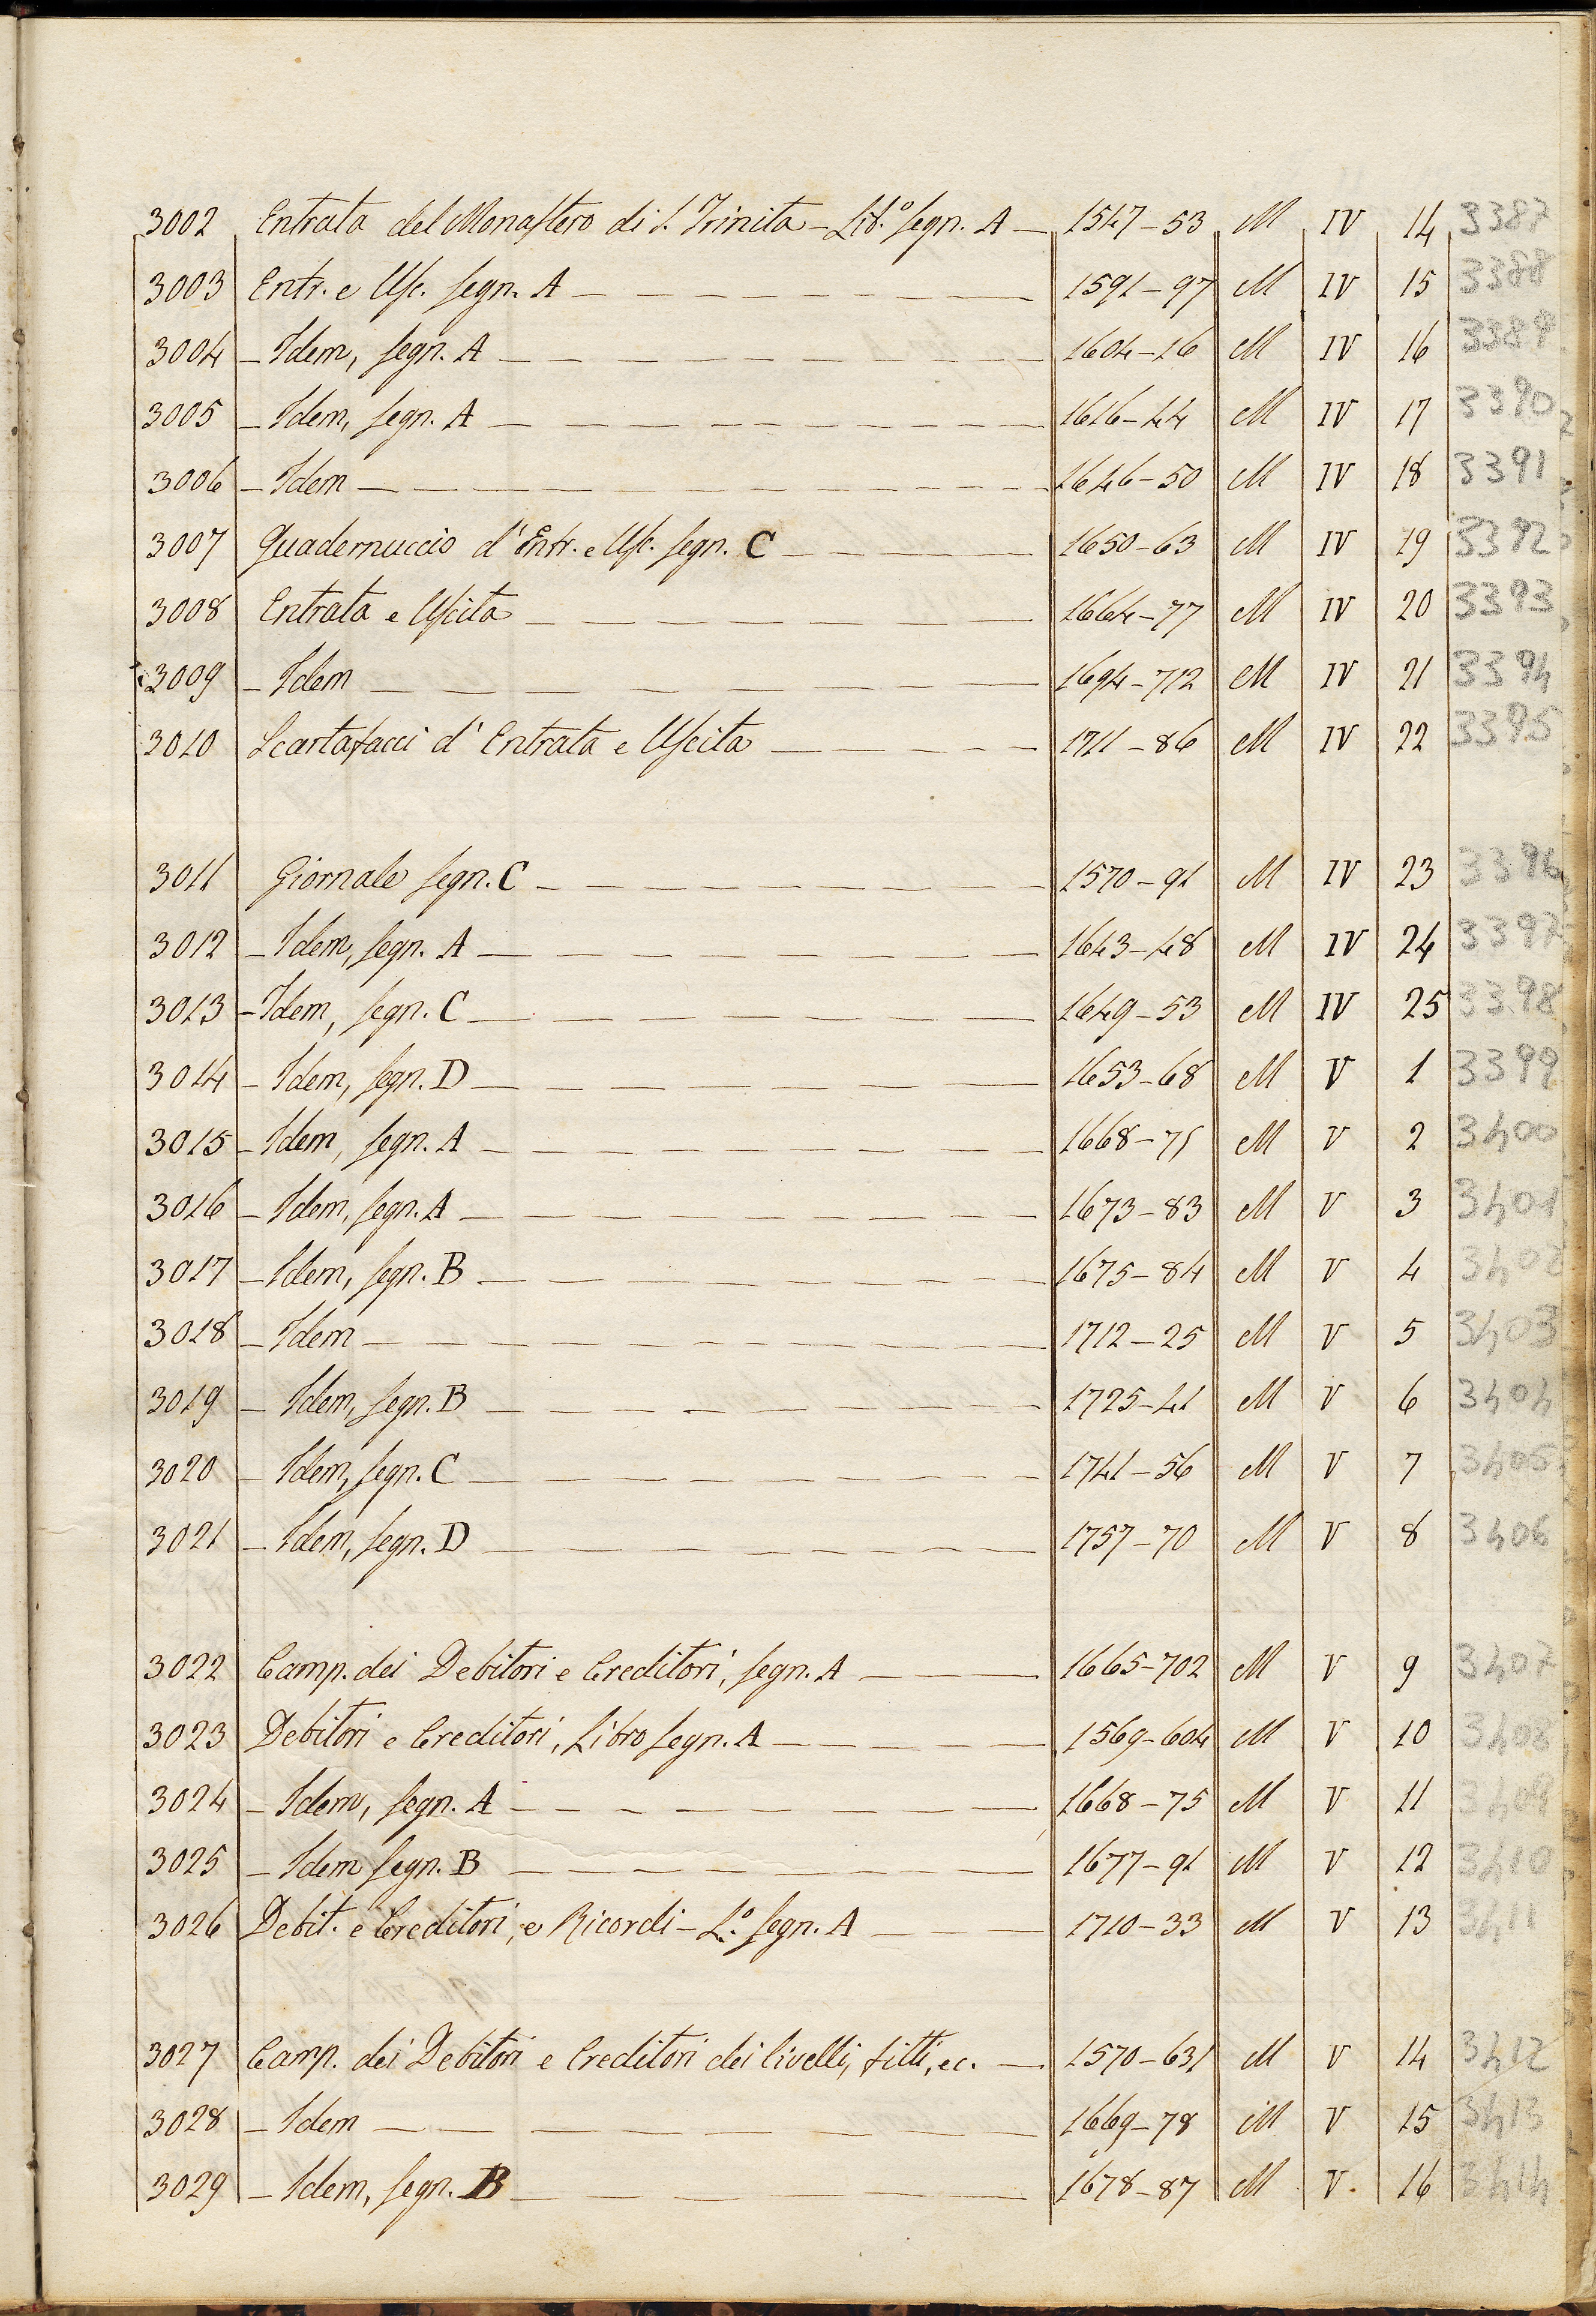 3002 Entrata del Monastero di S. Trinita – Lib.º segn. A — 1547–53 M IV 14 3387
3003 Entr. e Usc. segn. A — 1591–97 M IV 15 3388
3004 – Idem, segn. A — 1604–16 M IV 16 3389
3005 – Idem, segn. A — 1616–44 M IV 17 3390
3006 – Idem — 1646–50 M IV 18 3391
3007 Quadernuccio d'Entr. e Usc. segn. C — 1650–63 M IV 19 3392
3008 Entrata e Uscita — 1664–77 M IV 20 3393
3009 – Idem — 1694–712 M IV 21 3394
3010 Scartafacci d'Entrata e Uscita — 1711–86 M IV 22 3395
3011 Giornale segn. C — 1570–91 M IV 23 3396
3012 – Idem, segn. A — 1643–48 M IV 24 3397
3013 – Idem, segn. C — 1649–53 M IV 25 3398
3014 – Idem, segn. D — 1653–68 M V 1 3399
3015 – Idem, segn. A — 1668–75 M V 2 3400
3016 – Idem, segn. A — 1673–83 M V 3 3401
3017 – Idem, segn. B — 1675–84 M V 4 3402
3018 – Idem — 1712–25 M V 5 3403
3019 – Idem, segn. B — 1725–41 M V 6 3404
3020 – Idem, segn. C — 1741–56 M V 7 3405
3021 – Idem, segn. D — 1757–70 M V 8 3406
3022 Camp. dei Debitori e Creditori, segn. A — 1665–702 M V 9 3407
3023 Debitori e Creditori, Libro segn. A — 1569–604 M V 10 3408
3024 – Idem, segn. A — 1668–75 M V 11 3409
3025 – Idem segn. B — 1677–91 M V 12 3410
3026 Debit. e Creditori, e Ricordi – L.º segn. A — 1710–33 M V 13 3411
3027 Camp. dei Debitori e Creditori dei livelli, fitti, ec. — 1570–631 M V 14 3412
3028 – Idem — 1669–78 M V 15 3413
3029 – Idem, segn. B — 1678–87 M V. 16 3414